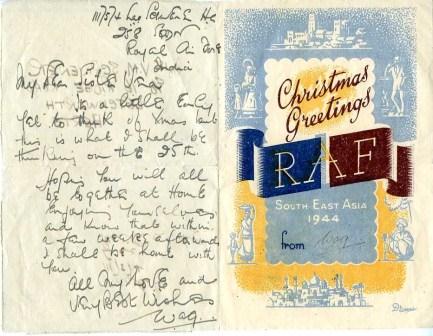 258 Sqdn
Royal Air Force
India
My Dear Sister
Its a little Early
Yet to think of Xmas but
this is what I shall be
thinking on the 25th.
Hoping You will all
be together at Home
Enjoying Yourselves
and know that within
a few weeks afterwards
I shall be home with
You
All My Love and
Very Best Wishes
Wag.
Christmas
Greetings
RAF
SOUTH EAST ASIA
1944
from Wag